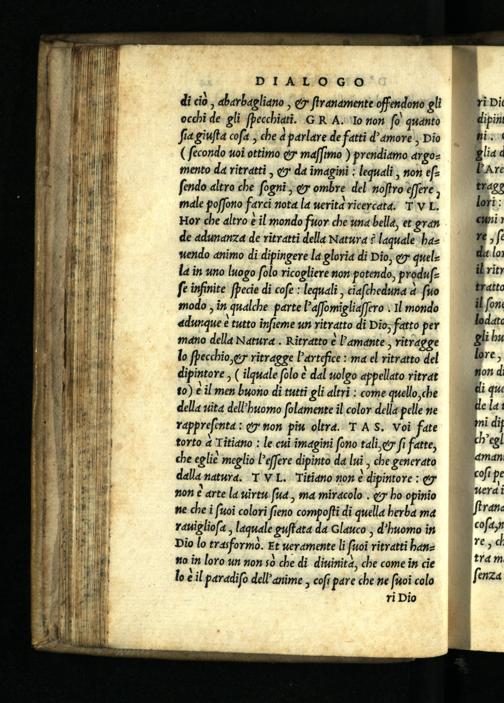 DIALOGO
di ciò, abarbagliano, & stranamente offendono gli
occhi de gli specchiati. GRA. Io non sò quanto
sia giusta cosa, che à parlare de fatti d'amore, Dio
( secondo uoi ottimo & massimo ) prendiamo argo=
mento da ritratti, & da imagini : lequali, non es=
sendo altro che sogni, & ombre del nostro essere,
male possono farci nota la uerità ricercata. TVL.
Hor che altro è il mondo fuor che una bella, et gran
de adunanza de ritratti della Natura ? laquale ha=
uendo animo di dipingere la gloria di Dio, & quel=
la in uno luogo solo ricogliere non potendo, produs=
se infinite specie di cose : lequali, ciascheduna à suo
modo, in qualche parte l'assomigliassero. Il mondo
adunque è tutto insieme un ritratto di Dio, fatto per
mano della Natura. Ritratto è l'amante, ritragge
lo specchio, & ritragge l'artefice : ma el ritratto del
dipintore, ( ilquale solo è dal uolgo appellato ritrat
to) è il men buono di tutti gli altri : come quello, che
della uita dell'huomo solamente il color della pelle ne
rappresenta : & non piu oltra. TAS. Voi fate
torto à Titiano : le cui imagini sono tali, & si fatte,
che egliè meglio l'essere dipinto da lui, che generato
dalla natura. TVL. Titiano non è dipintore : &
non è arte la uirtu sua, ma miracolo. & ho opinio
ne che i suoi colori sieno composti di quella herba ma
rauigliosa, laquale gustata da Glauco, d'huomo in
Dio lo trasformò. Et ueramente li suoi ritratti han=
no in loro un non sò che di diuinità, che come in cie
lo è il paradiso dell'anime, cosi pare che ne suoi colo
ri Dio
ri Dio
dipint
ni.
glia d
l'Are
tragg
lori :
cuni r
re, se
da lor
il ritr
tratto
il sono
lodato
gli hu
lore,
non di
di que
de la
mi dip
ch'egl
aman
cosi pe
uera i
strana
cosa, n
re, ch
tra m
senza